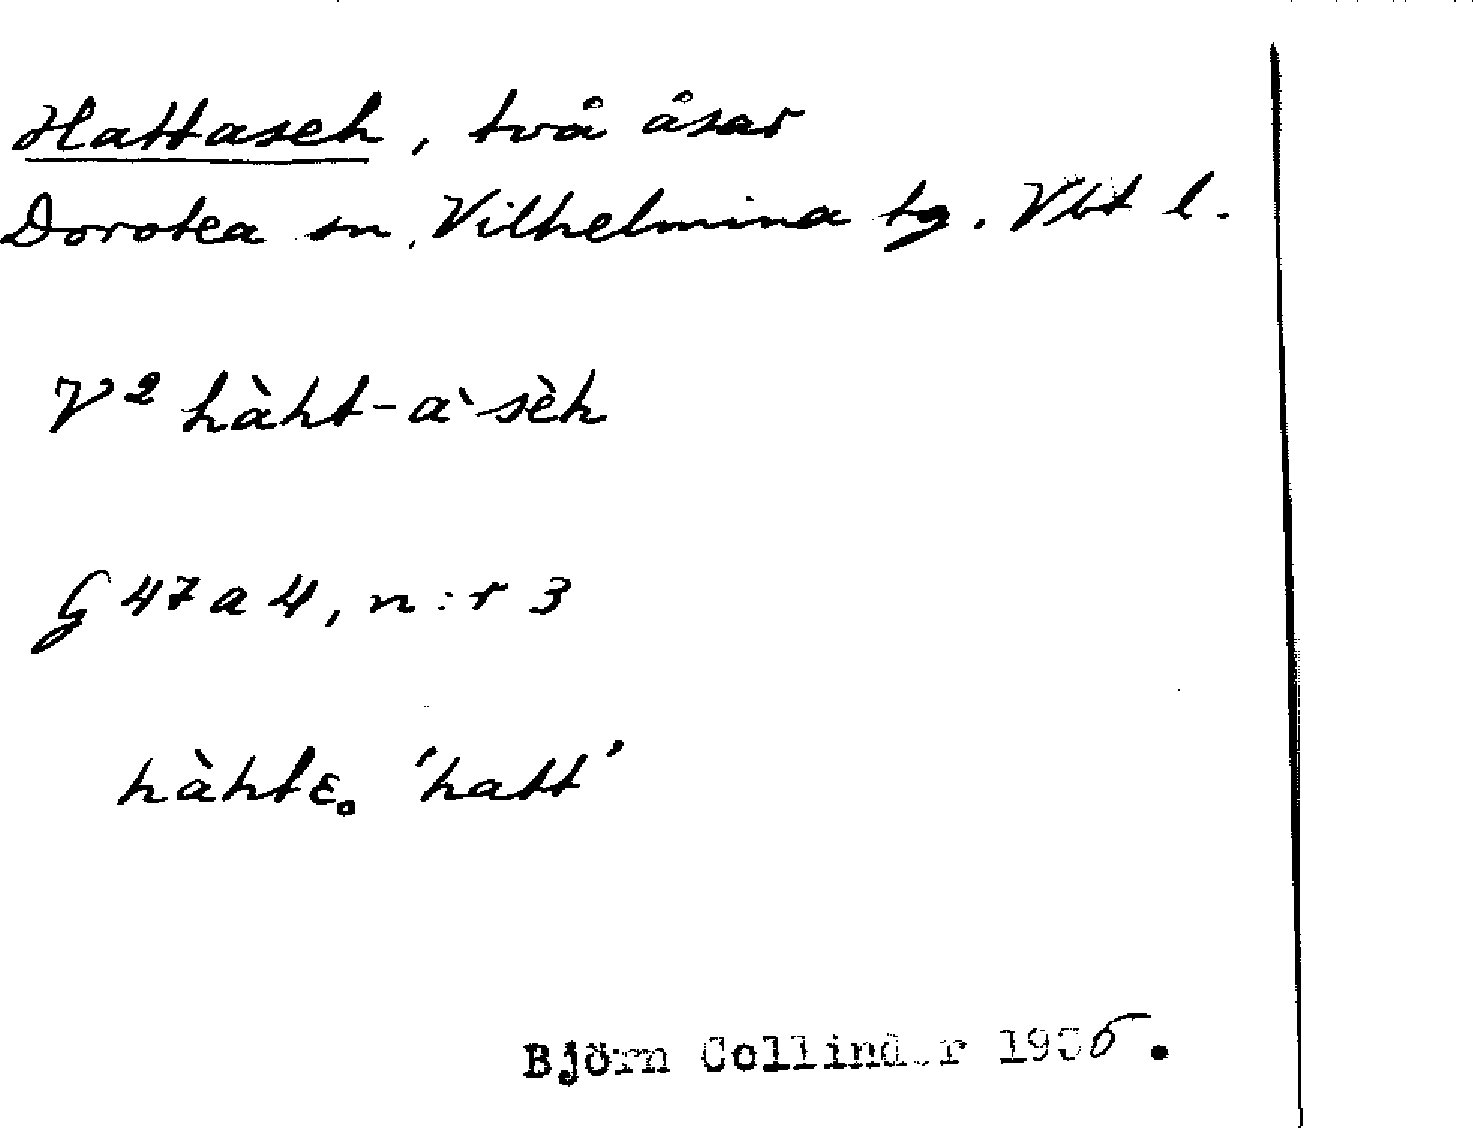 Hattaseh, två åsar
Dorotea sn, Vilhelmina tg. Vbt l.
V² hàht-a`sèh
G 47 a 4, n:r 3
hàhtɛ。 'hatt'
Björn Collinder